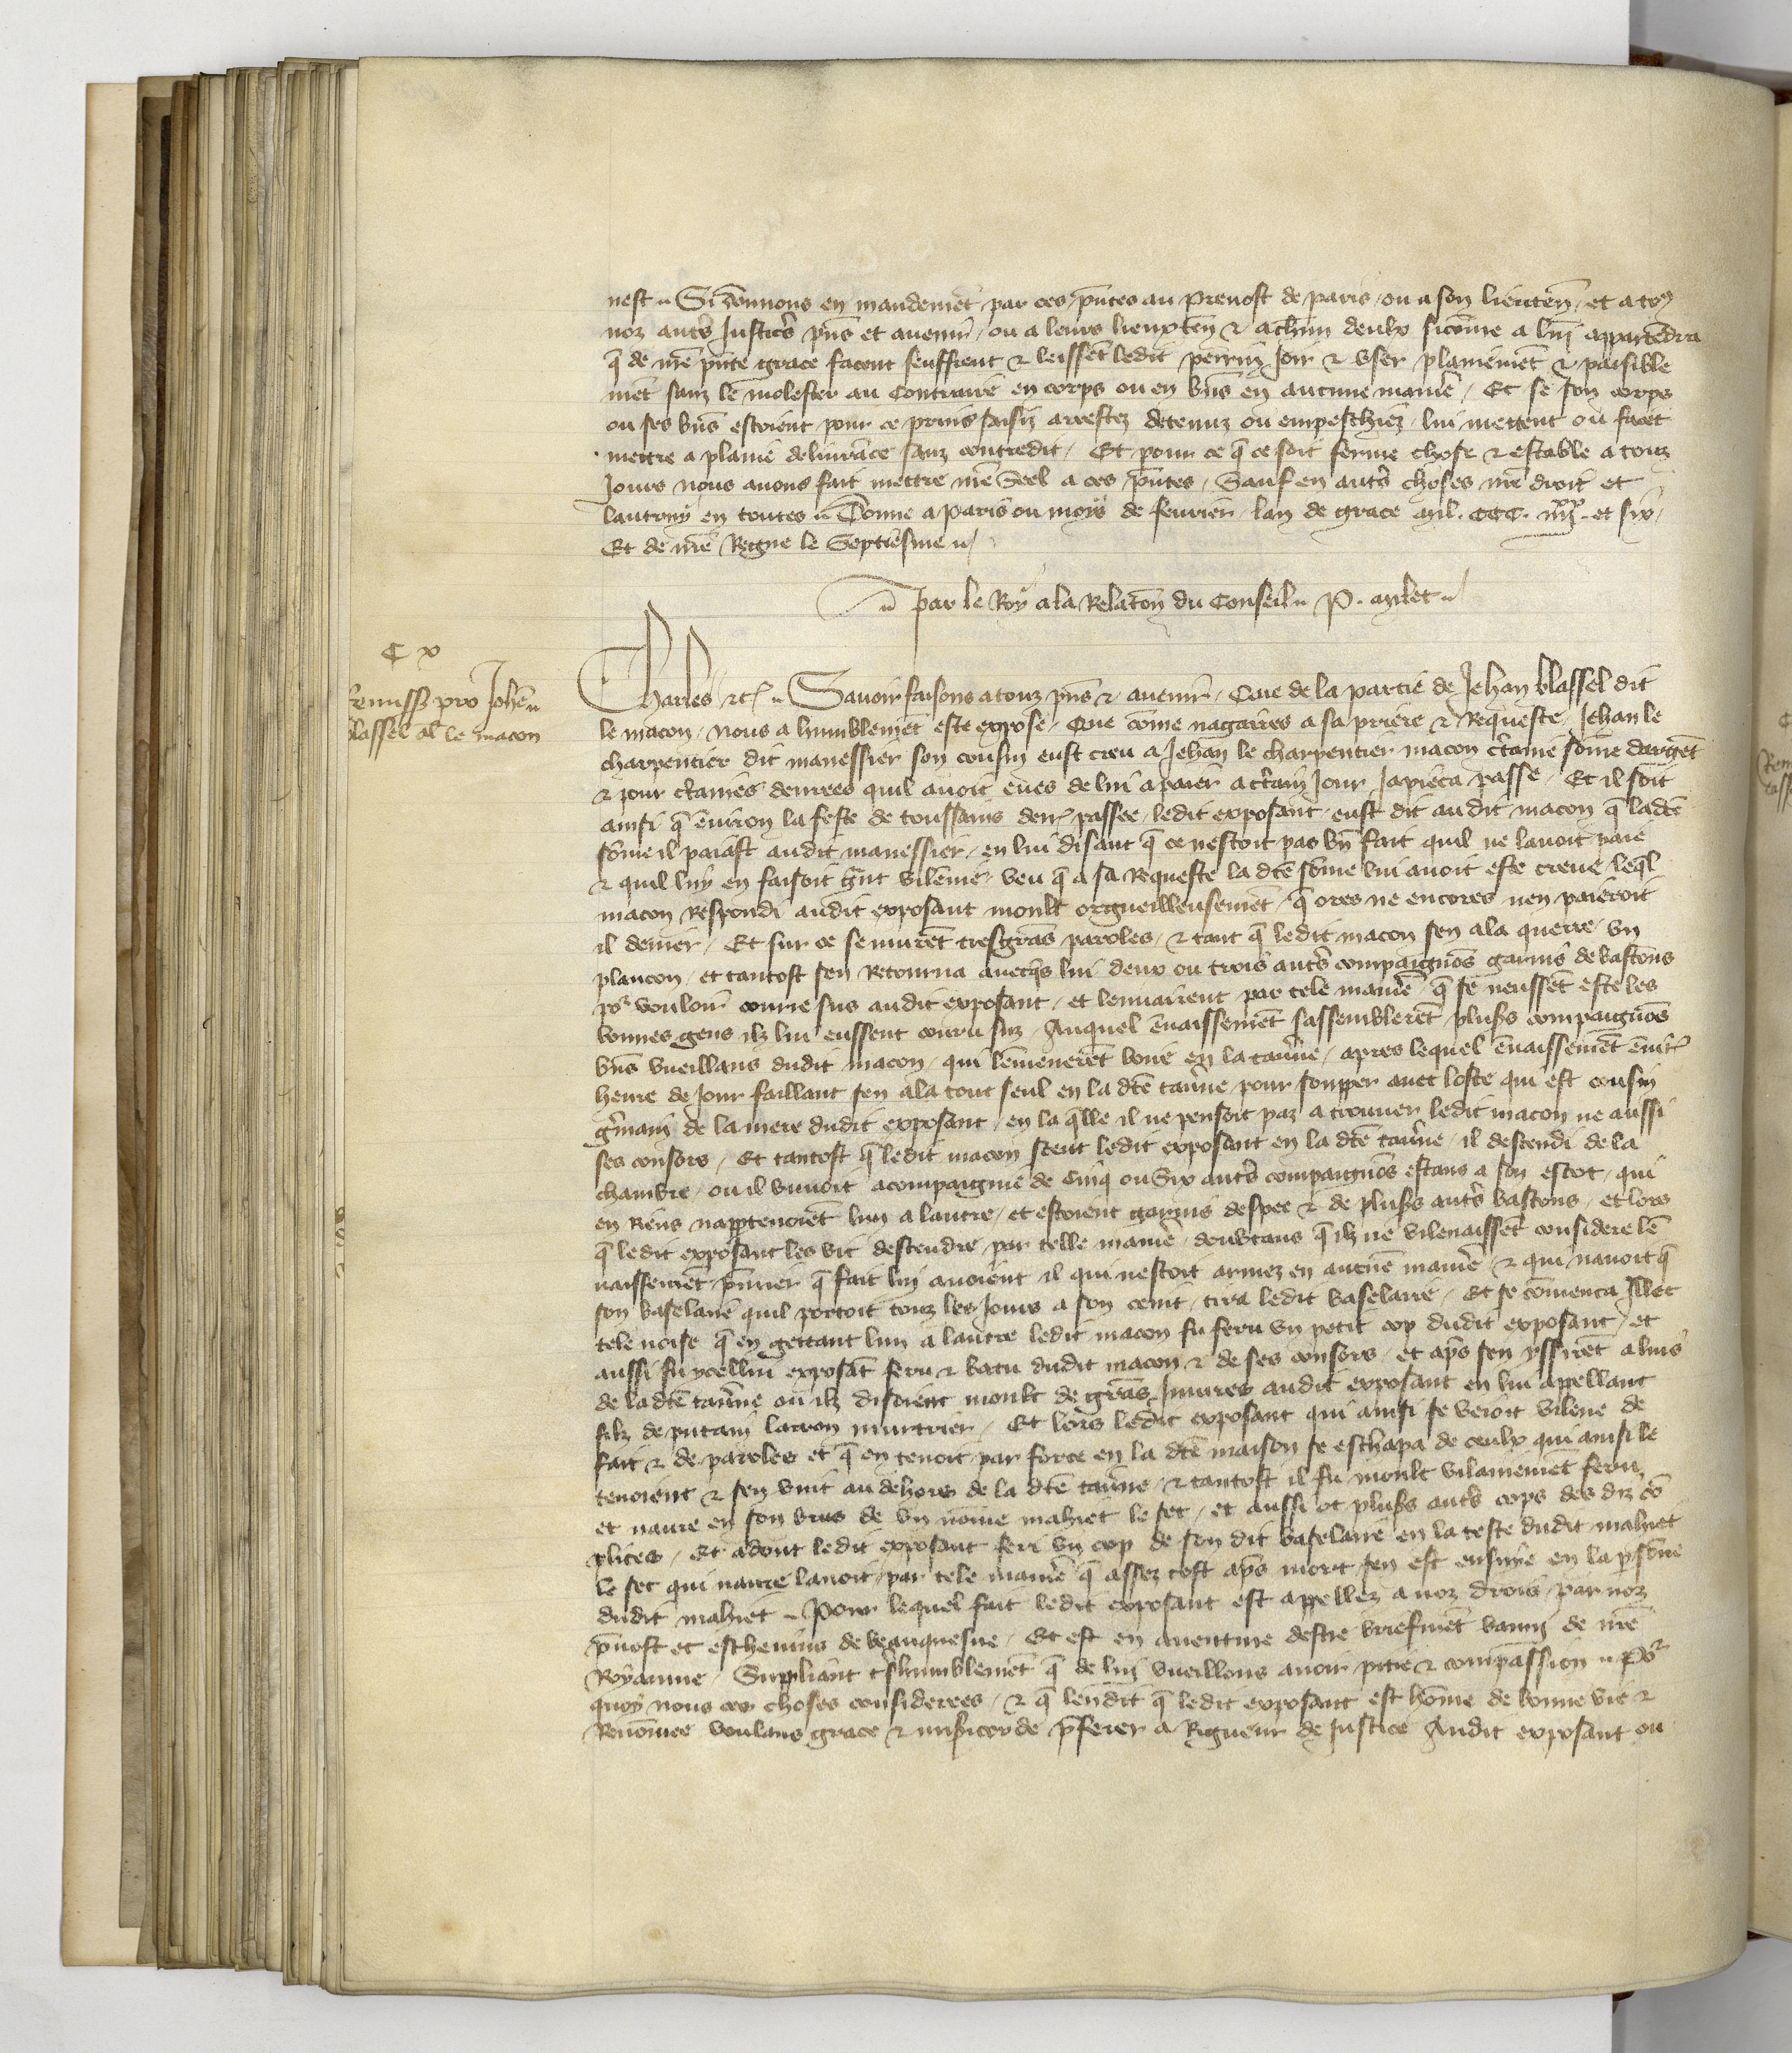 nest. Si donnons en mandemēt par ces p̄ntes au prevost de paris ou a son lieuten̄ et a toꝰ
noz autr̄s Justicr̄s p̄ns et avenir ou a leurs lieuxten̄ & a ch̄un deulx sicōme a luy appartēdra
q̄ de nr̄e p̄nte grace facent seuffrent & leissent ledit perrin Joir & user plainemēt & paisible
mēt sanz le molester au Contraire en corps ou en biēs en aucune manier̄ Et se son corps
ou ses biēs estoient pour ce prins saisiz arrestez detenuz ou empeschiez lui mettent ou facēt
mettre a plaine delivrāce sanz contredit Et pour ce q̄ ce soit ferme chose & estable a touz
Jours nous avons fait mettre nr̄e Seel a ces p̄ntes Sauf en autr̄s choses nr̄e droit et
lautruy en toutes Donne a paris ou mois de fevrier lan de grace mil. CCC. iiiixx. et six
Et de nr̄e Regne le Septiesme
par le Roy a la Relacōn du Conseil P. Milet
C x
Remiss pro Joh̄e
blassel al̄ le macon
Charles etc Savoir faisons a touz p̄ns & avenir Que de la partie de Jehan blassel dit
le macon nous a humblemēt este expose Que cōme nagaires a sa priere & Requeste Jehan le
charpentier dit manessier son cousin eust creu a Jehan le charpentier macon c̄taine sōme dargēt
& pour c̄taines denrees quil avoit eues de lui a paier a c̄tain Jour Ja pieca passe Et il soit
ainsi q̄ environ la feste de toussains den̄ passee ledit exposant eust dit audit macon q̄ ladt̄e
sōme il paiast audit manessier en lui disant q̄ ce nestoit pas bn̄ fait quil ne lavoit paie
& quil luy en faisoit gn̄t vilenie veu q̄ a sa Requeste la dt̄e sōme lui avoit este creue leq̄l
macon Respondi audit exposant moult orgueilleusemēt q̄ ores ne encores nen paieroit
il denier Et sur ce se murēt tresgrās paroles & tant q̄ ledit macon sen ala querre un
plancon et tantost sen Retourna avecq̄s lui deux ou trois autr̄s compaignōs garnis de bastons
poʳ vouloir courre sus audit exposant et lenvairent par tele manier̄ q̄ se neussēt este les
bonnes gens ilz lui eussent couru suz Auquel envaissemēt sassemblerēt plusrs compaignōs
biēs vueillans dudit macon qui lēmenerēt boire en la tav̄ne apres lequel envaissemēt envirō
heure de Jour faillant sen ala tout seul en la dt̄e tav̄ne pour soupper avec loste qui est cousin
ḡmain de la mere dudit exposant en la q̄lle il ne pensoit paz a trouver ledit macon ne aussi
ses consors Et tantost q̄ ledit macon sceut ledit exposant en la dt̄e tav̄ne il descendi de la
chambre ou il buvoit acompaignie de Cinq ou Six autr̄s compaignōs estans a son escot qui
en Riens nappartenoiēt lun a lautre et estoient garnis despee & de plusrs autr̄s bastons et lors
q̄ ledit exposant les vit descendre par telle manier̄ doubtans q̄ ilz ne vilenaissēt considere lē
vaissemēt p̄mier q̄ fait luy avoient il qui nestoit armez en aucūe manier̄ & qui navoit q̄
son baselaire quil portoit touz les Jours a son ceint tira ledit baselaire Et se cōmenca Illec
tele noise q̄ en gettant lun a lautre ledit macon fu feru un petit cop dudit exposant et
aussi fu ycellui exposāt feru & batu dudit macon & de ses consors et apr̄s sen yssirēt a luis
de la dt̄e tav̄ne ou ilz disoient moult de grās Injures audit exposant en lui appellant
filz de putain larron murtrier Et lors ledit exposant qui ainsi se veoit vilene de
fait & de paroles et q̄ en tenoit par force en la dt̄e maison se eschapa de ceulx qui ainsi le
tenoient & sen vint au dehors de la dt̄e tav̄ne & tantost il fu moult vilainemēt feru
et navre en son bras de un nōme mahiet le set et aussi ot plusrs autr̄s cops des diz cō
plices Et adont ledit exposant feri un cop de son dit baselaire en la teste dudit mahiet
le set qui navre lavoit par tele manier̄ q̄ assez tost apr̄s mort sen est ensuye en la p̄sōne
dudit mahiet Pour lequel fait ledit exposant est appellez a noz drois par noz
p̄vost et eschevins de beauquesne Et est en aventure destre briefmēt banny de nr̄e
Royaume Suppliant tr̄shumblemēt q̄ de luy vueillons avoir pitie & compassion Poʳ
quoy nous ces choses considerees & q̄ len dit q̄ ledit exposant est hōme de bonne vie &
Renōmee voulans grace & misericorde p̄ferer a Rigueur de Justice Audit exposant ou